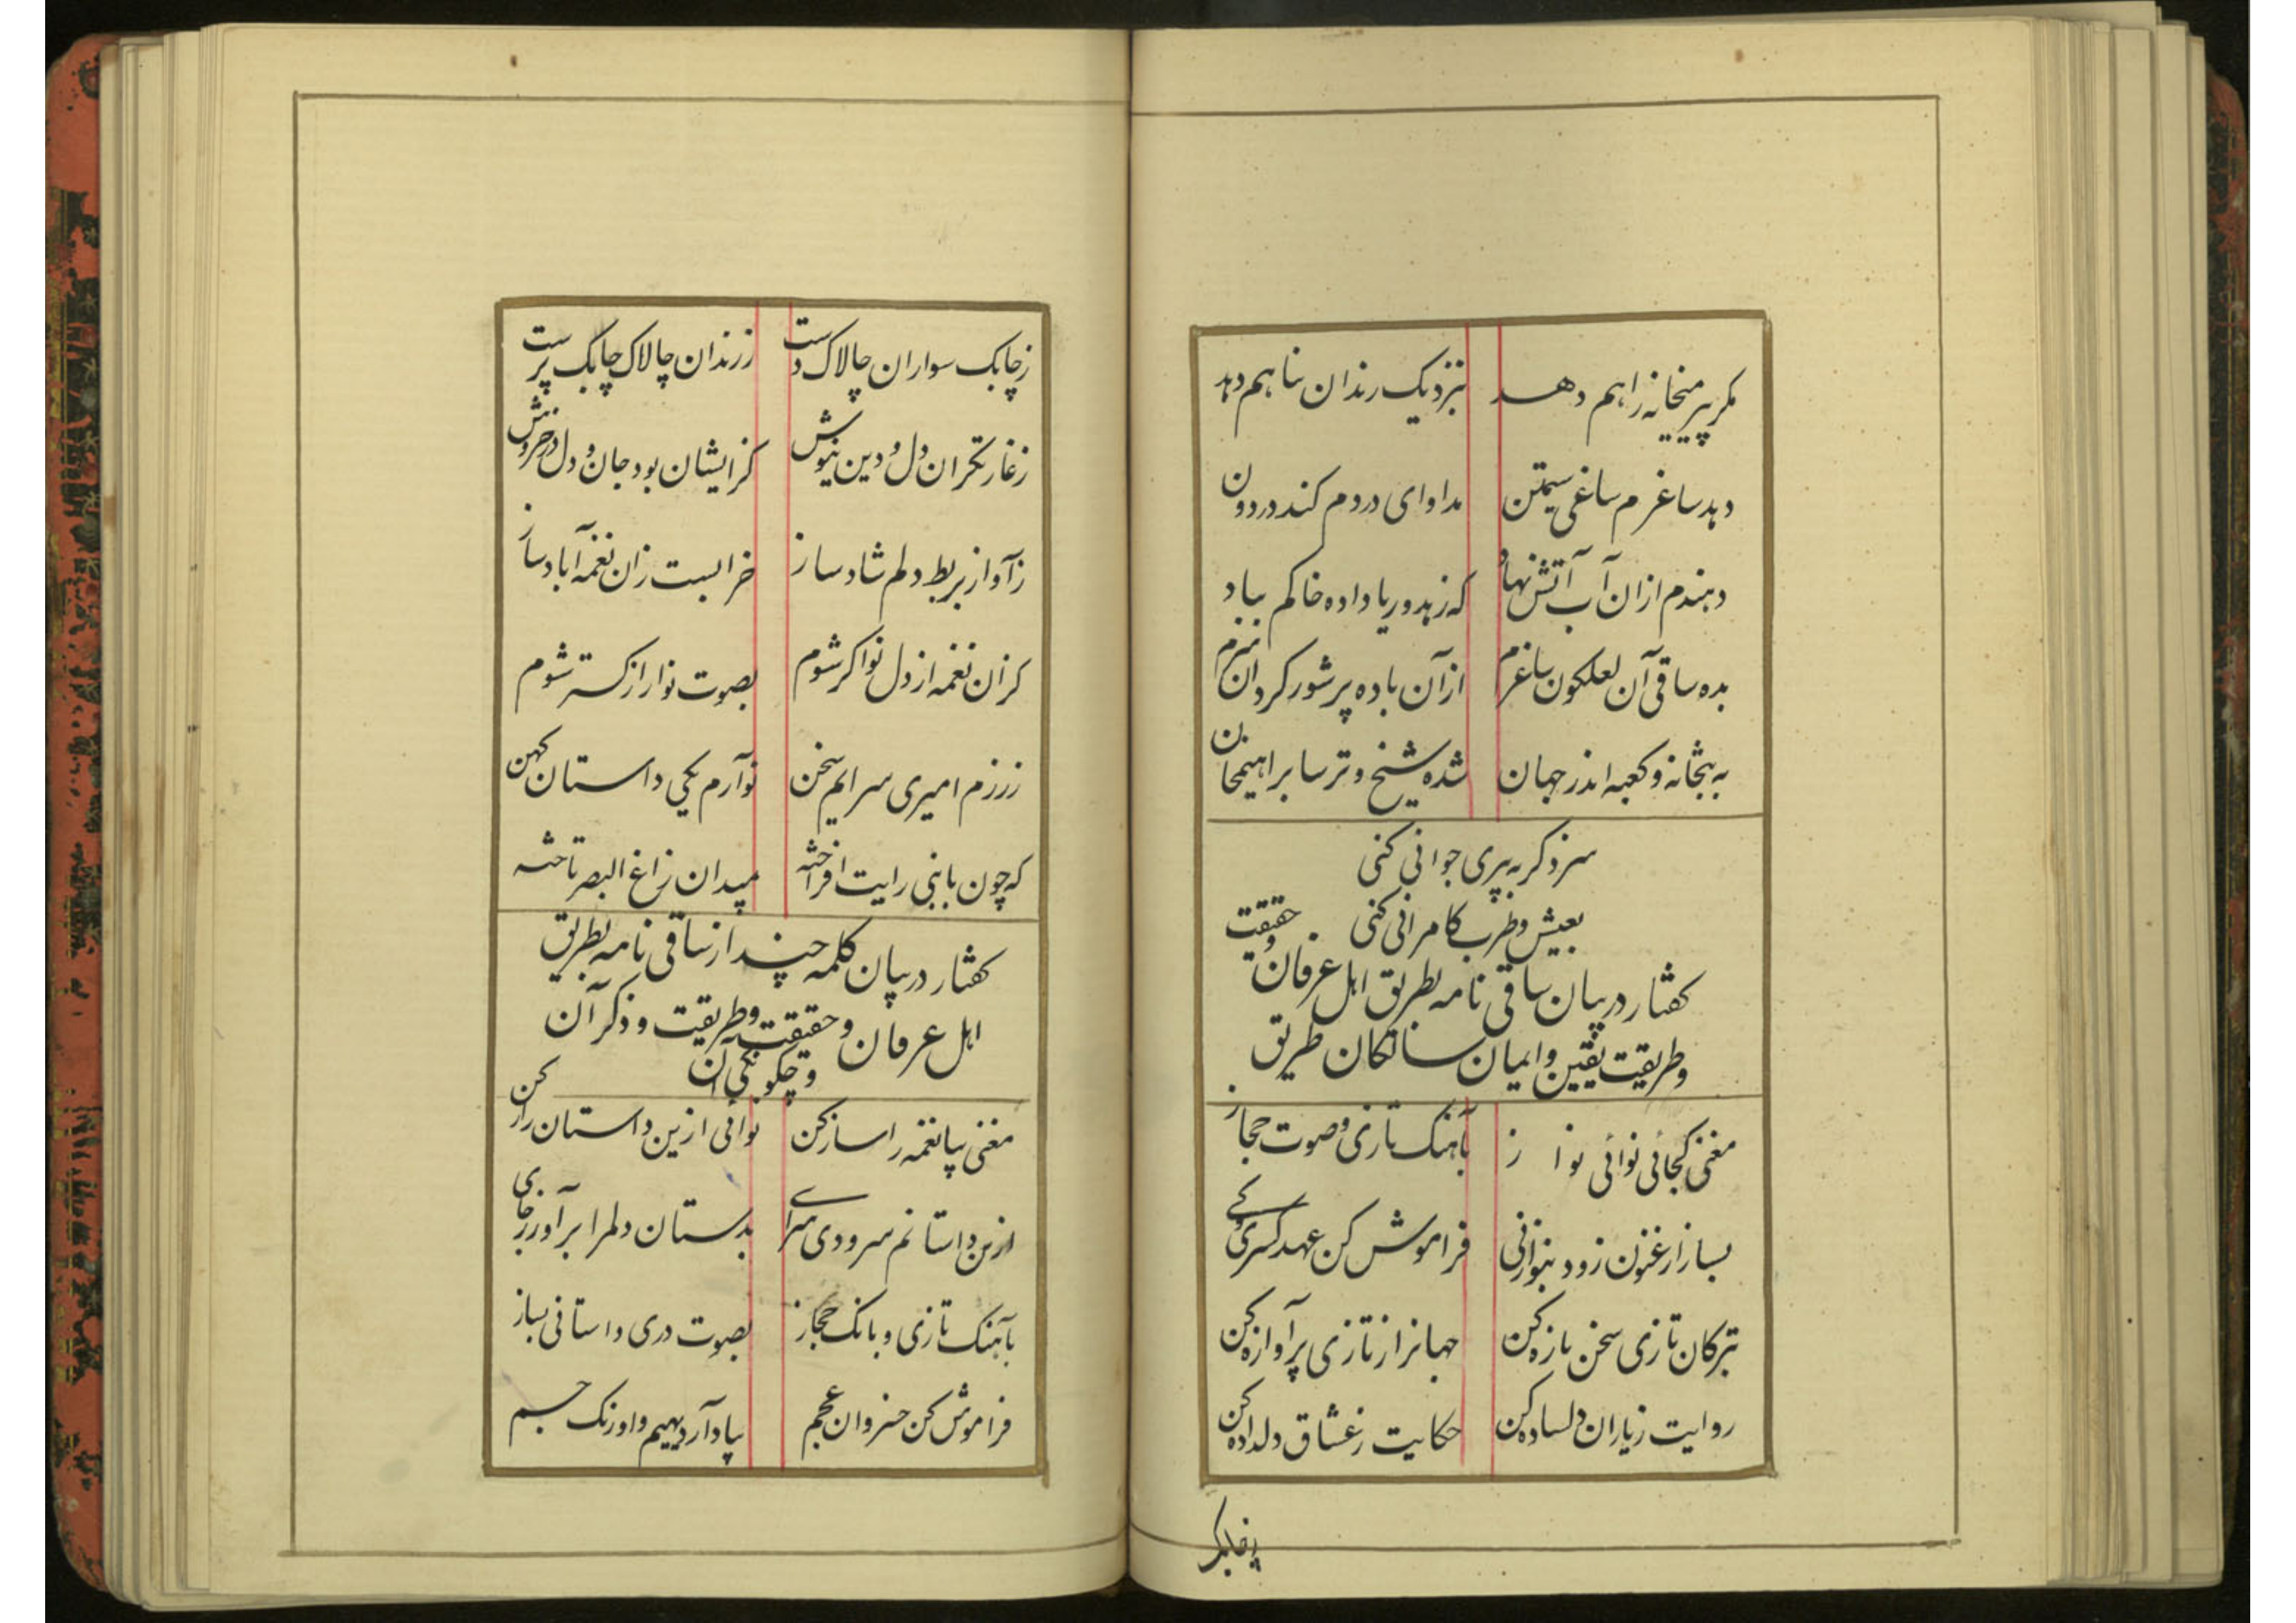 مکر پیر میخانه راهم دهد بنزدیک رندان پناهم دهد
دهد ساغرم ساغی سیمتن مداوای دردم کند درد دن
دهندم ازان آب آتش نهاد که زهد و ریا داده خاکم بباد
بده ساقی آن لعلکون ساغرم ازآن باده پر شور کردان سرم
به بتخانه و کعبه اندر جهان شده شیخ و ترسا براهیم خان
سزد کر به پیری جوانی کنی
بعیش و طرب کامرانی کنی
کفتار در بیان ساقی نامه بطریق اهل عرفان و حقیقت
وطریقت یقین و ایمان سالکان طریق
مغنی کجائی نوائی نواز بآهنک تازی و صوت حجاز
بساز ارغنون زود بنواز نی فراموش کن عهد کسری و کے
بترکان تازی سخن تازه کن جهانرا ز تازی پر آوازه کن
روایت زیاران دلساده کن حکایت زعشاق دلداده کن
زچابک
زچابک سواران چالاک دست ز رندان چالاک چابک پرست
زغارتکران دل و دین نیوش کزایشان بود جان و دل در خروش
زآواز بربط دلم شاد ساز خرابست زان نغمه آباد ساز
کزان نغمه از دل نواکر شوم بصوت نوا رازکستر شوم
ز رزم امیری سرایم سخن نوآرم یکی داستان کهن
که چون با نبی رایت افراخته بمیدان زاغ البصر تاخته
کفتار در بیان کلمه چند از ساقی نامه بطریق
اهل عرفان و حقیقت و طریقت و ذکر آن
و چکونکی آن
مغنی بیا نغمه را ساز کن نوائی ازین داستان راز کن
ازین داستانم سرودی سرای بدستان دلم را برآور زجای
بآهنک تازی و بانک حجاز بصوت دری داستانی بساز
فراموش کن خسروان عجم بیاد آر دیهیم و اورنک جم